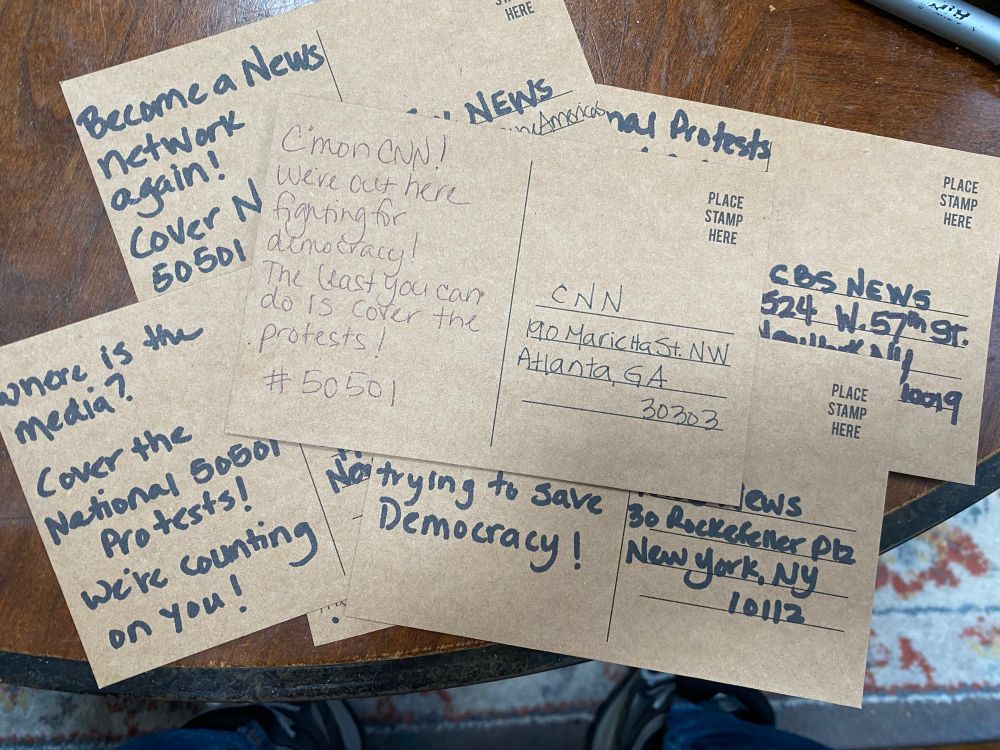 Become a News
network
again!
Cover N
50501
HERE
NEWS
America's
nal Protests
C'mon CNN!
We're out here
fighting for
democracy!
The least you can
do is cover the
protests!
#50501
PLACE
STAMP
HERE
CNN
190 Marietta St. NW
Atlanta, GA
30303
PLACE
STAMP
HERE
CBS NEWS
524 W. 57th St.
New York, NY
10019
Where is the
media?
Cover the
National 50501
Protests!
We're counting
on you!
trying to save
Democracy!
PLACE
STAMP
HERE
News
30 Rockefeller Plz
New York, NY
10112